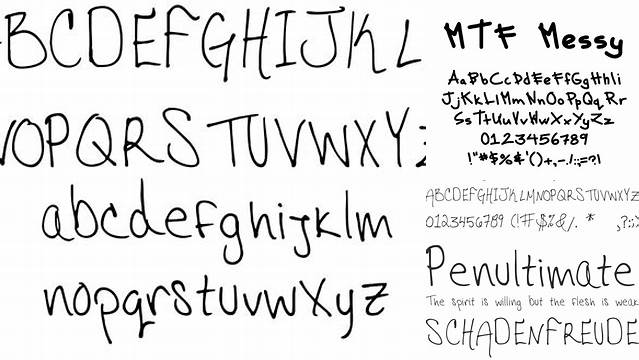 BCDEFGHIJKL
NOPQRSTUVWXYZ
abcdefghijklm
nopqrstuvwxyz
MTF Messy
AaBbCcDdEeFfGgHhIi
JjKkLlMmNnOoPpQqRr
SsTtUuVvWwXxYyZz
0123456789
!"#$%&'()+,-./:;=?!
ABCDEFGHIJKLMNOPQRSTUVWXYZ
0123456789 (!?#$%&/. * ,?:;
Penultimate
The spirit is willing but the flesh is weak
SCHADENFREUDE